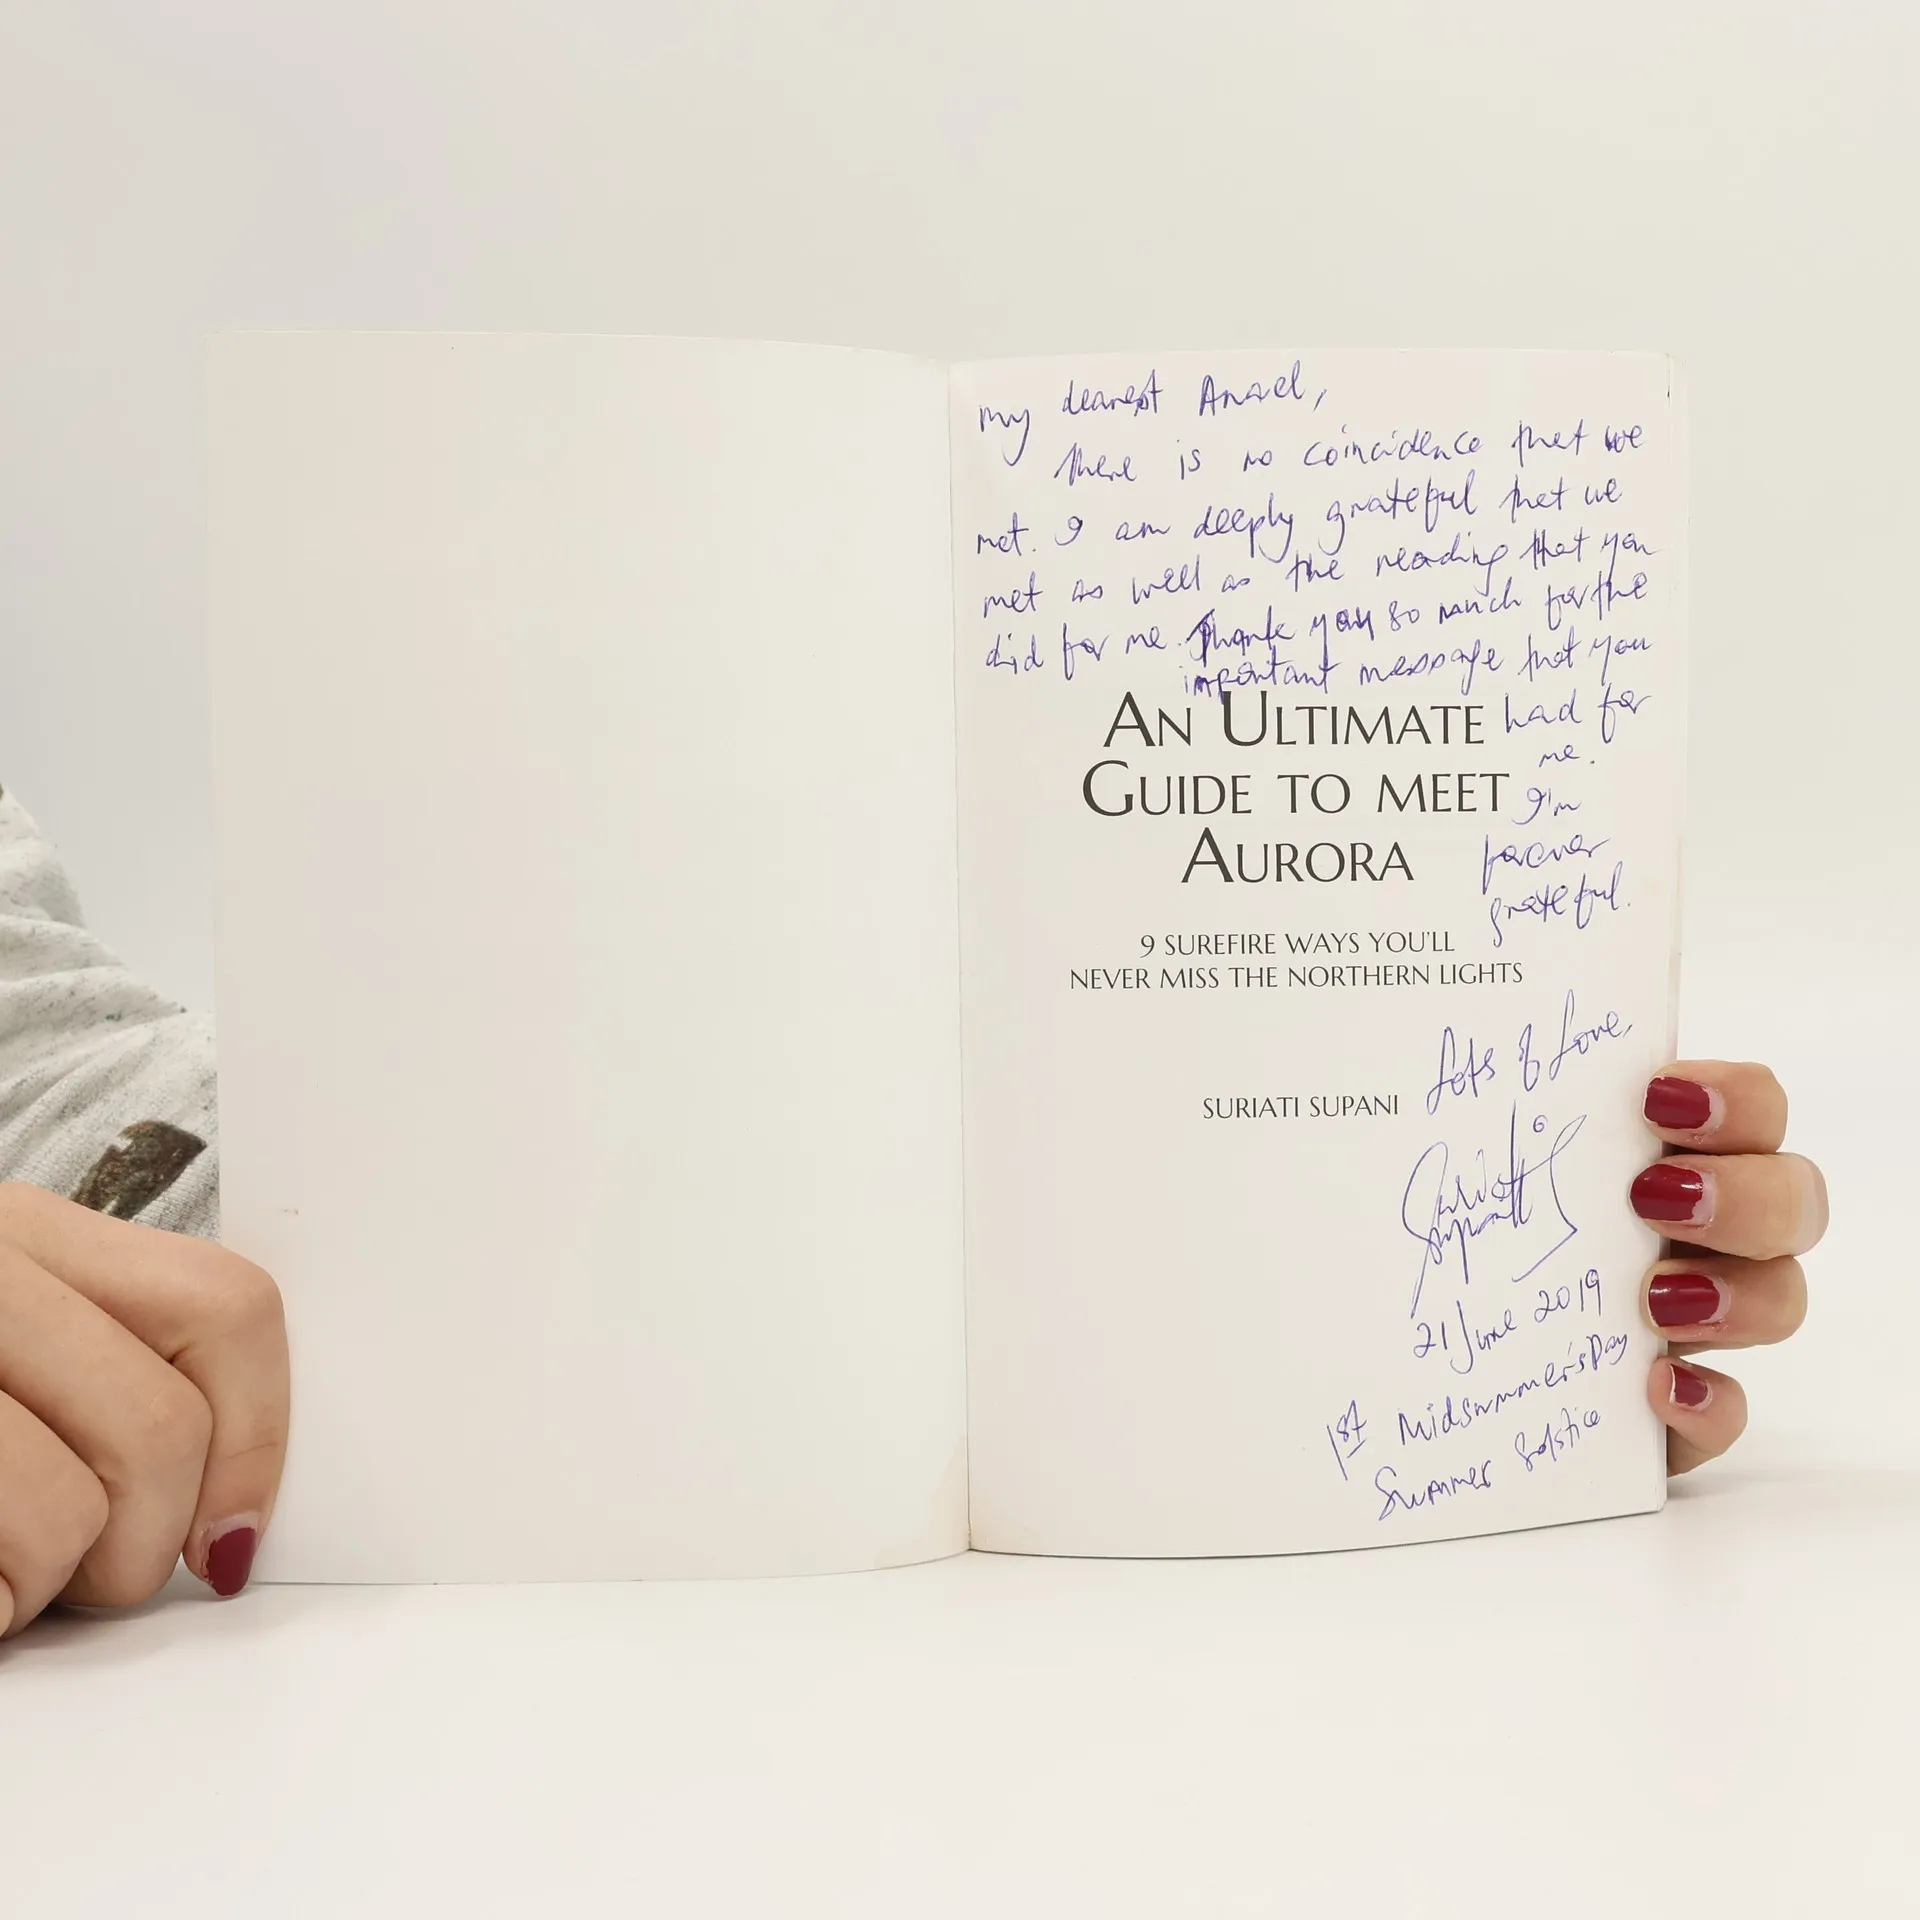 My dearest Anael,
there is no coincidence that we
met. I am deeply grateful that we
met as well as the reading that you
did for me. Thank you so much for the
important message that you
had for
me.
I'm
forever
grateful.
AN ULTIMATE
GUIDE TO MEET
AURORA
9 SUREFIRE WAYS YOU'LL
NEVER MISS THE NORTHERN LIGHTS
Lots of Love,
SURIATI SUPANI
Suriati
Supani
21 June 2019
1st Midsummer's Day
Summer Solstice